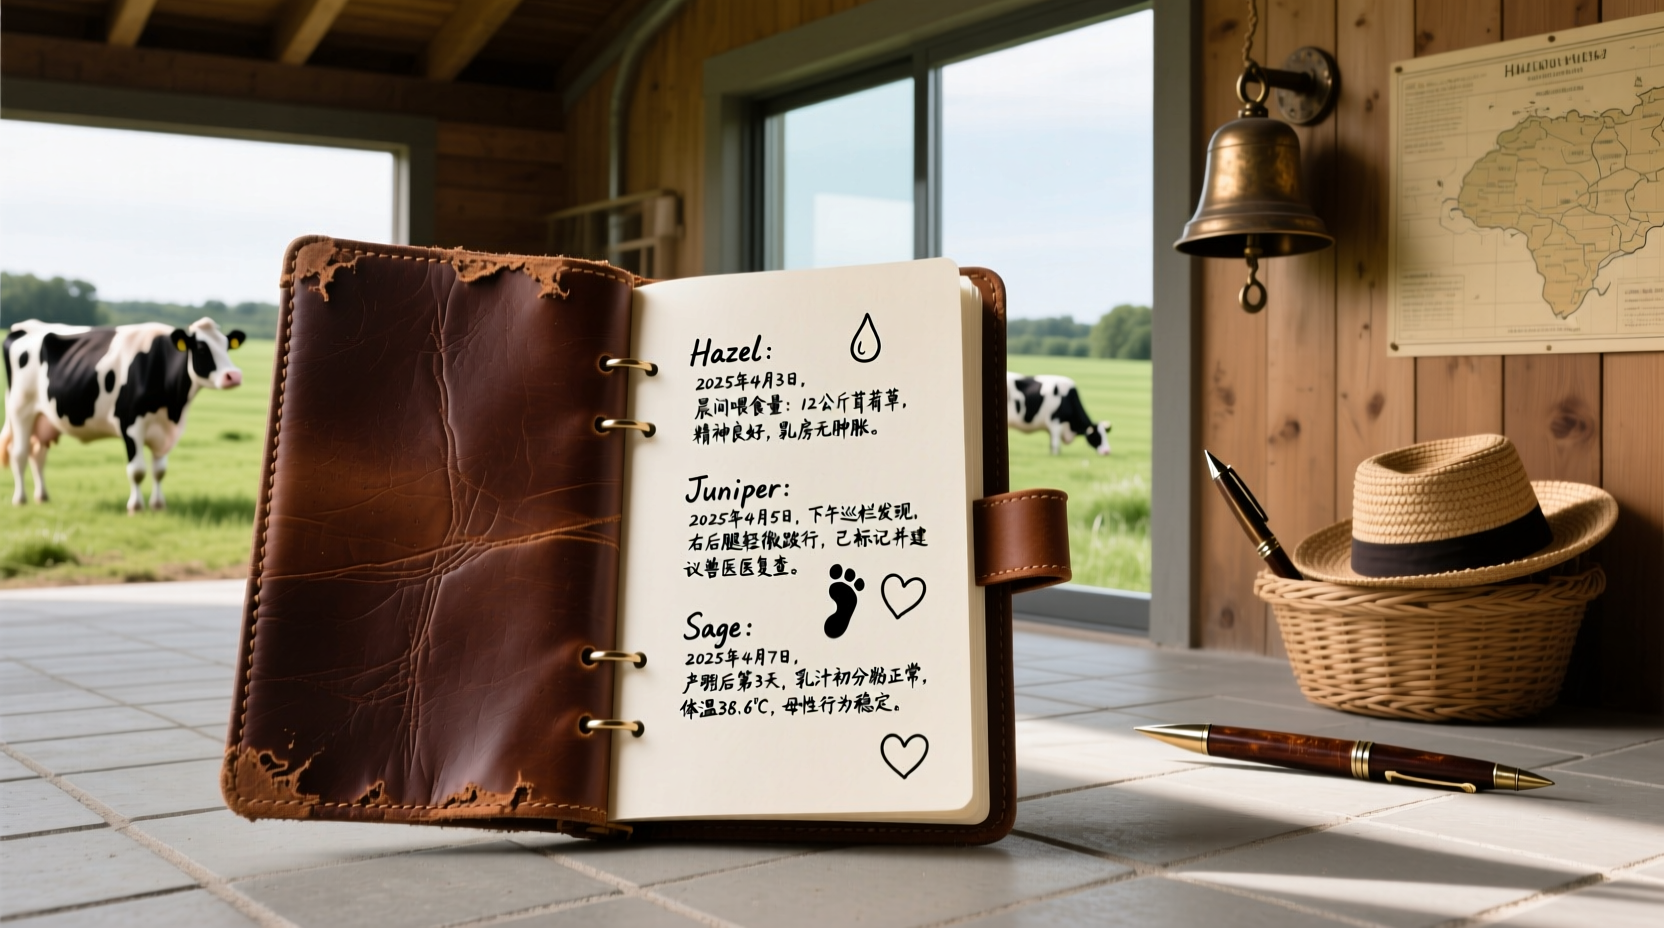 Hazel:
2025年4月3日，
晨间喂食量：12公斤草，
精神良好，乳房无肿胀。
Juniper:
2025年4月5日，下午巡栏发现，
右后腿轻微跛行，已标记并建
议兽医医复查。
Sage:
2025年4月7日，
产后第3天，乳汁初分泌正常，
体温38.6℃，母性行为稳定。